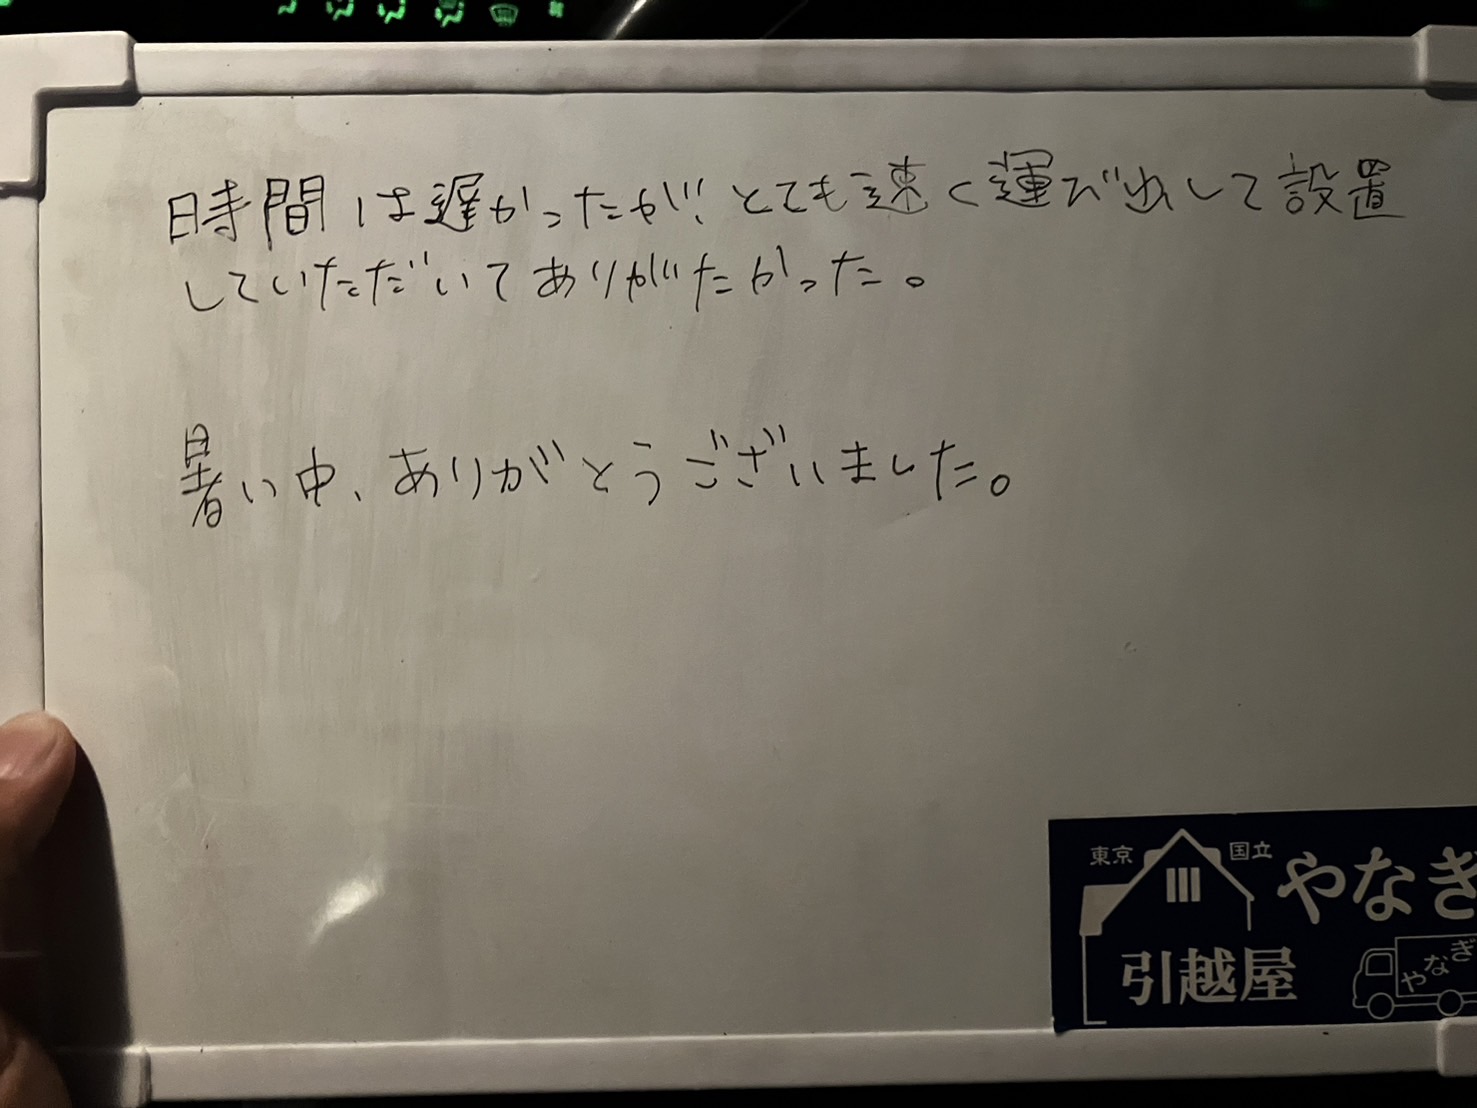 時間は遅かったが、とても速く運び出して設置
していただいてありがたかった。
暑い中、ありがとうございました。
東京 国立 やなぎ
引越屋
やなぎ